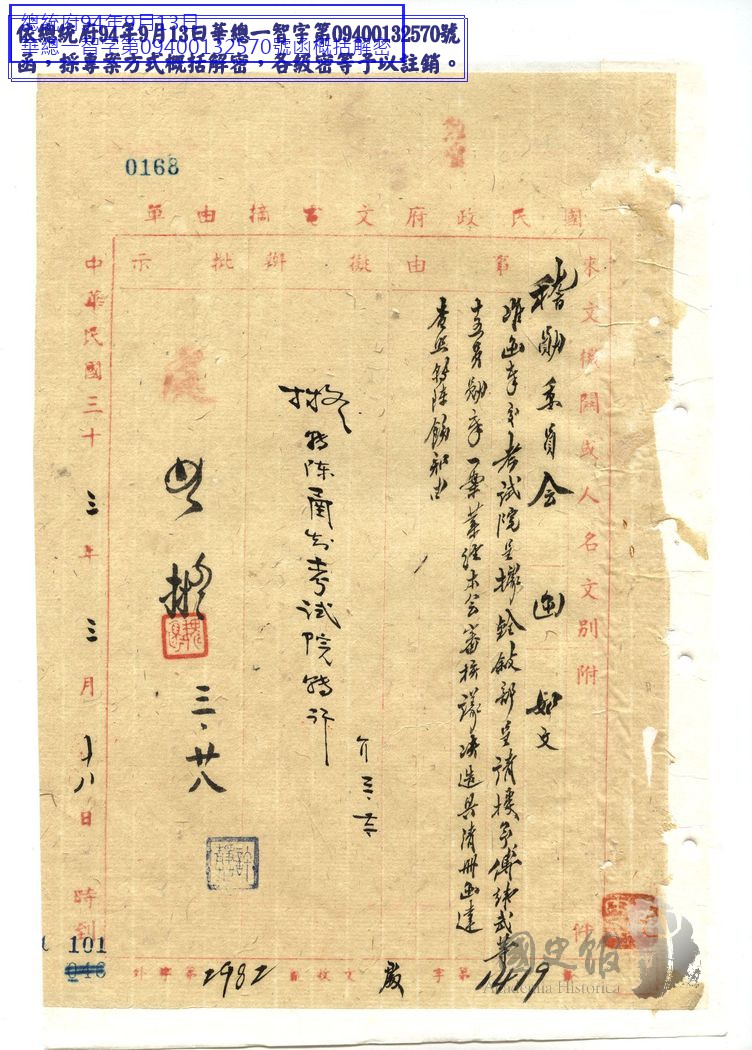 總統府94年9月13日
華總一智字第09400132570號函概括解密
依總統府94年9月13日華總一智字第09400132570號
函，採專案方式概括解密，各級密等予以註銷。
0168
國民政府文書摘由單
來文機關或人名文別附件
稽勛委員会 函 如文
第由擬辦批示
准函奉交考試院呈據銓敘部呈請授予傅緯武等
十五員勛章一案業經本会審核議决造具清册函達
查照轉陳飭知由
擬轉陳甬知考試院轉行
處
如擬
三、廿八
中華民國三十三年三月十八日時到
101
046
外字第2982
收文 歲字第1479號
國史館
Academia Historica